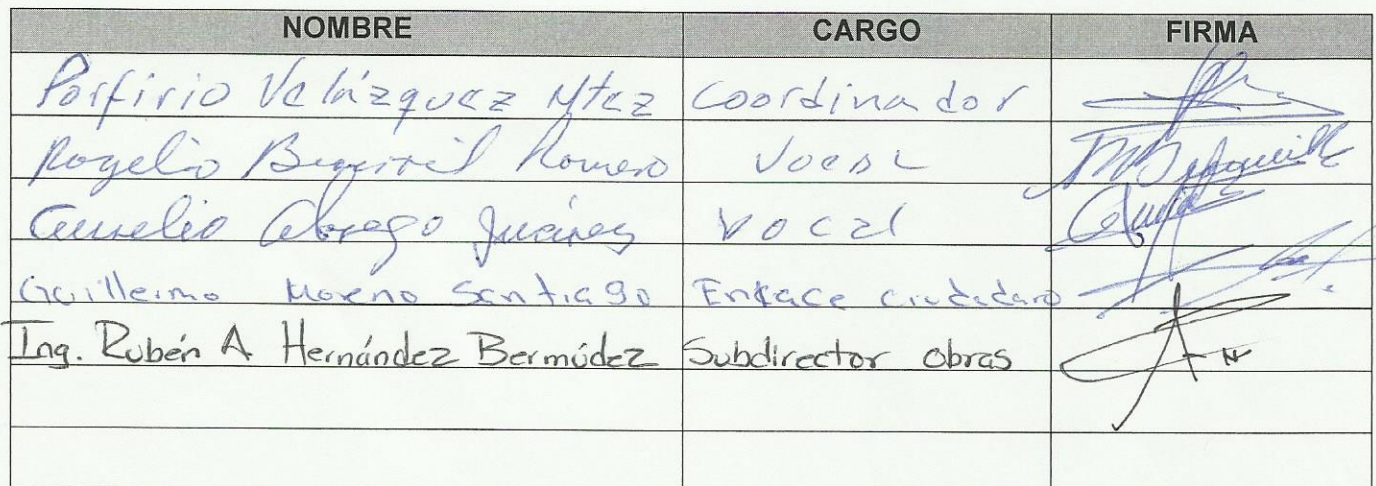 NOMBRE CARGO FIRMA
Porfirio Velázquez Mtez Coordinador
Rogelio Becerril Romero Vocal
Aurelio Abrego Juárez Vocal
Guillermo Moreno Santiago Enlace ciudadano
Ing. Rubén A Hernández Bermúdez Subdirector obras